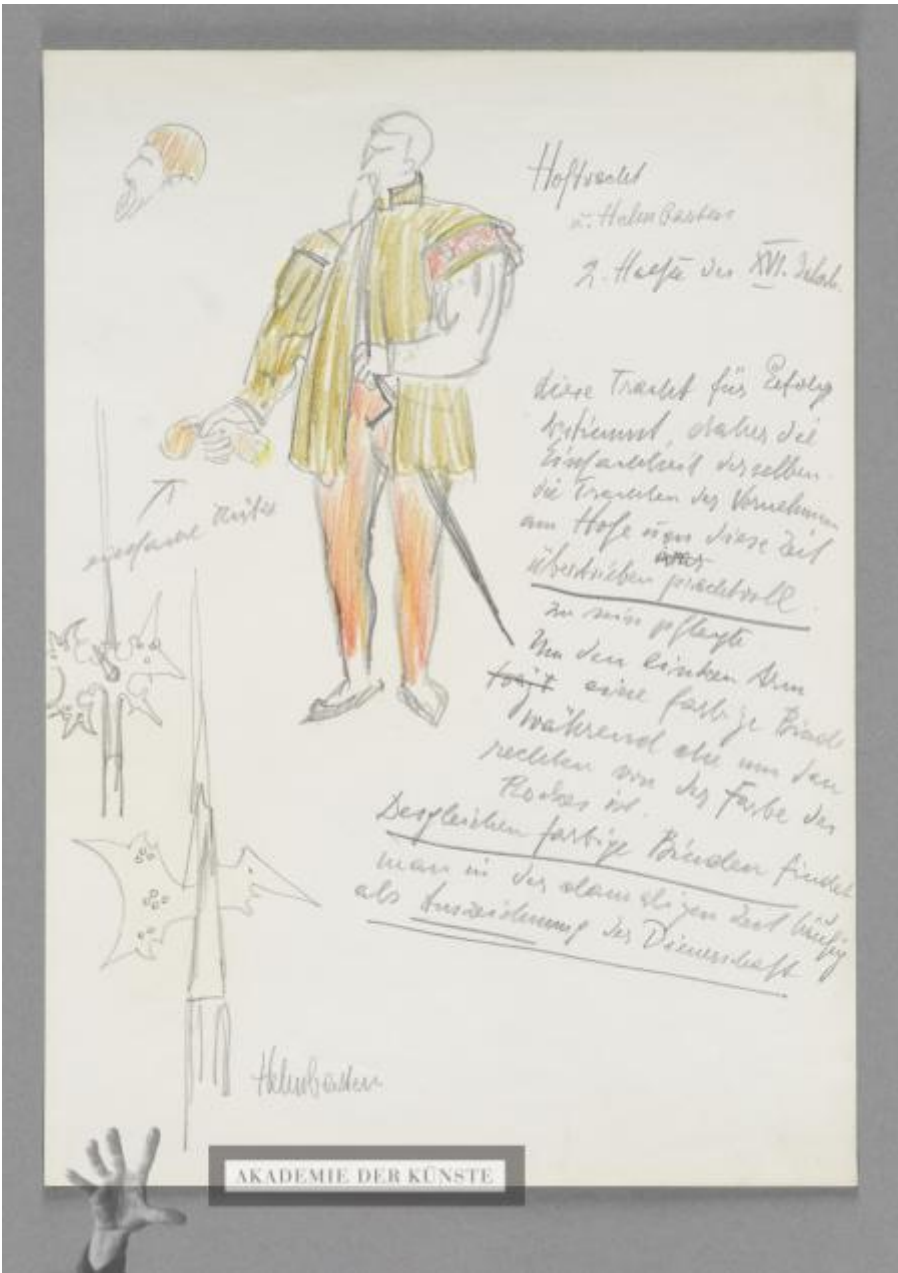 Hoftracht
u. Helmbarten
2. Haefte des XVI. Jahrh.
diese Tracht für Gefolg
bestimmt, daher die
Einfachheit derselben.
die Trachten der Vornehmen
am Hofe um diese Zeit
übertrieben prachtvoll
zu sein pflegte
Um den linken Arm
trägt eine farbige Binde
während die um den
rechten von der Farbe des
Rockes ist.
Desgleichen farbige Binden findet
man in der damaligen Zeit häufig
als Auszeichnung der Dienerschaft
Helmbarten
AKADEMIE DER KÜNSTE